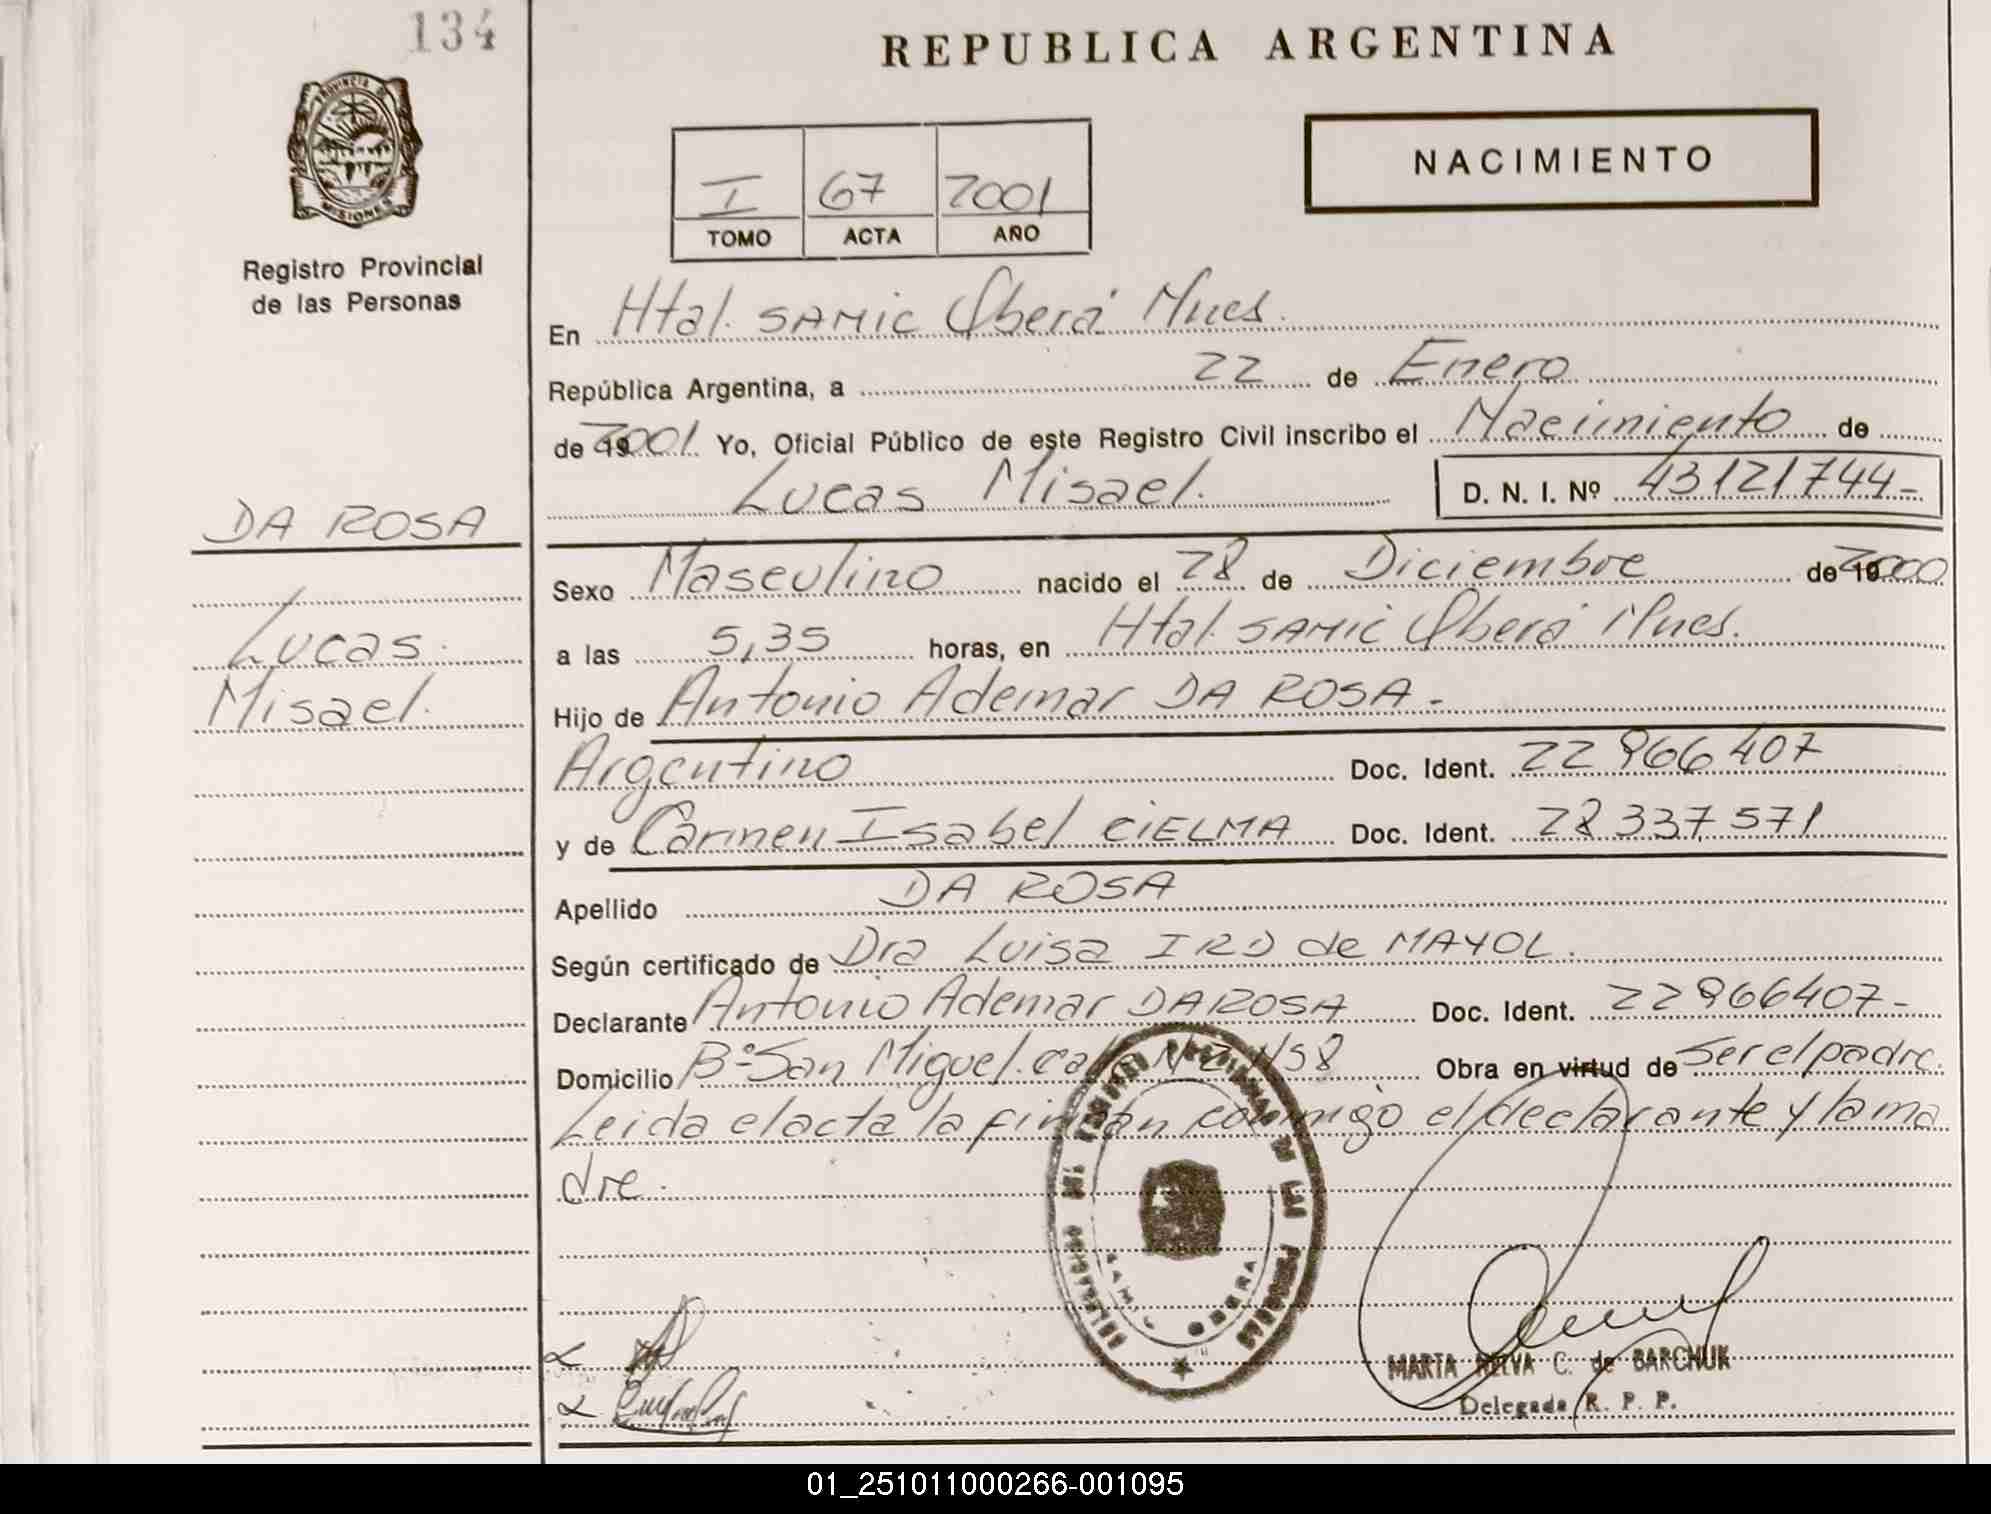 134
REPUBLICA ARGENTINA
PROVINCIA DE
MISIONES
NACIMIENTO
I 67 2001
TOMO ACTA AÑO
Registro Provincial
de las Personas
En Htal. SAMIC Oberá Mnes.
República Argentina, a 22 de Enero
de 2001. Yo, Oficial Público de este Registro Civil inscribo el Nacimiento de
Lucas Misael. D. N. I. Nº 43121744-
DA ROSA
Lucas
Misael.
Sexo Masculino nacido el 28 de Diciembre de 2000
a las 5,35 horas, en Htal. SAMIC Oberá Mnes.
Hijo de Antonio Ademar DA ROSA-
Argentino Doc. Ident. 22 966 407
y de Carmen Isabel CIELMA Doc. Ident. 28 337 571
Apellido DA ROSA
Según certificado de Dra Luisa IRD de MAYOL.
Declarante Antonio Ademar DA ROSA Doc. Ident. 22966407-
Domicilio Bº San Miguel. Obra en virtud de Ser el padre.
Leida el acta la firman conmigo el declarante y la ma
dre.
OBERA
MARTA C. de BARCHUK
Delegada R. P. P.
01_251011000266-001095